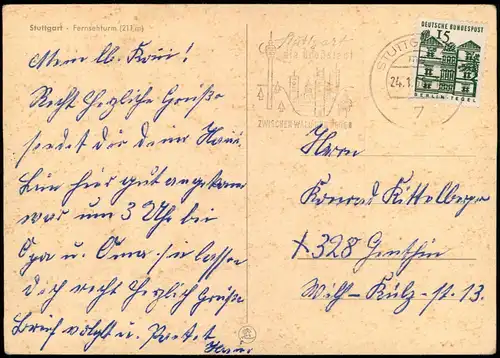 Stuttgart - Fernsehturm (211 m)
Mein lb. Koni!
Recht herzliche Grüße
sendet dir deine Hani.
Bin hier gut angekom
war um 3 Uhr bei
Opa u. Oma sie lassen
Dich recht herzlich Grüße
Brief folgt u. Packet
Hani
Stuttgart
die Großstadt
ZWISCHEN WALD UND REBEN
STUTTG
24.1
7
DEUTSCHE BUNDESPOST
15
BERLIN-TEGEL
Herrn
Konrad Kittelberger
x 328 Genthin
Wilh-Külz-st. 13.